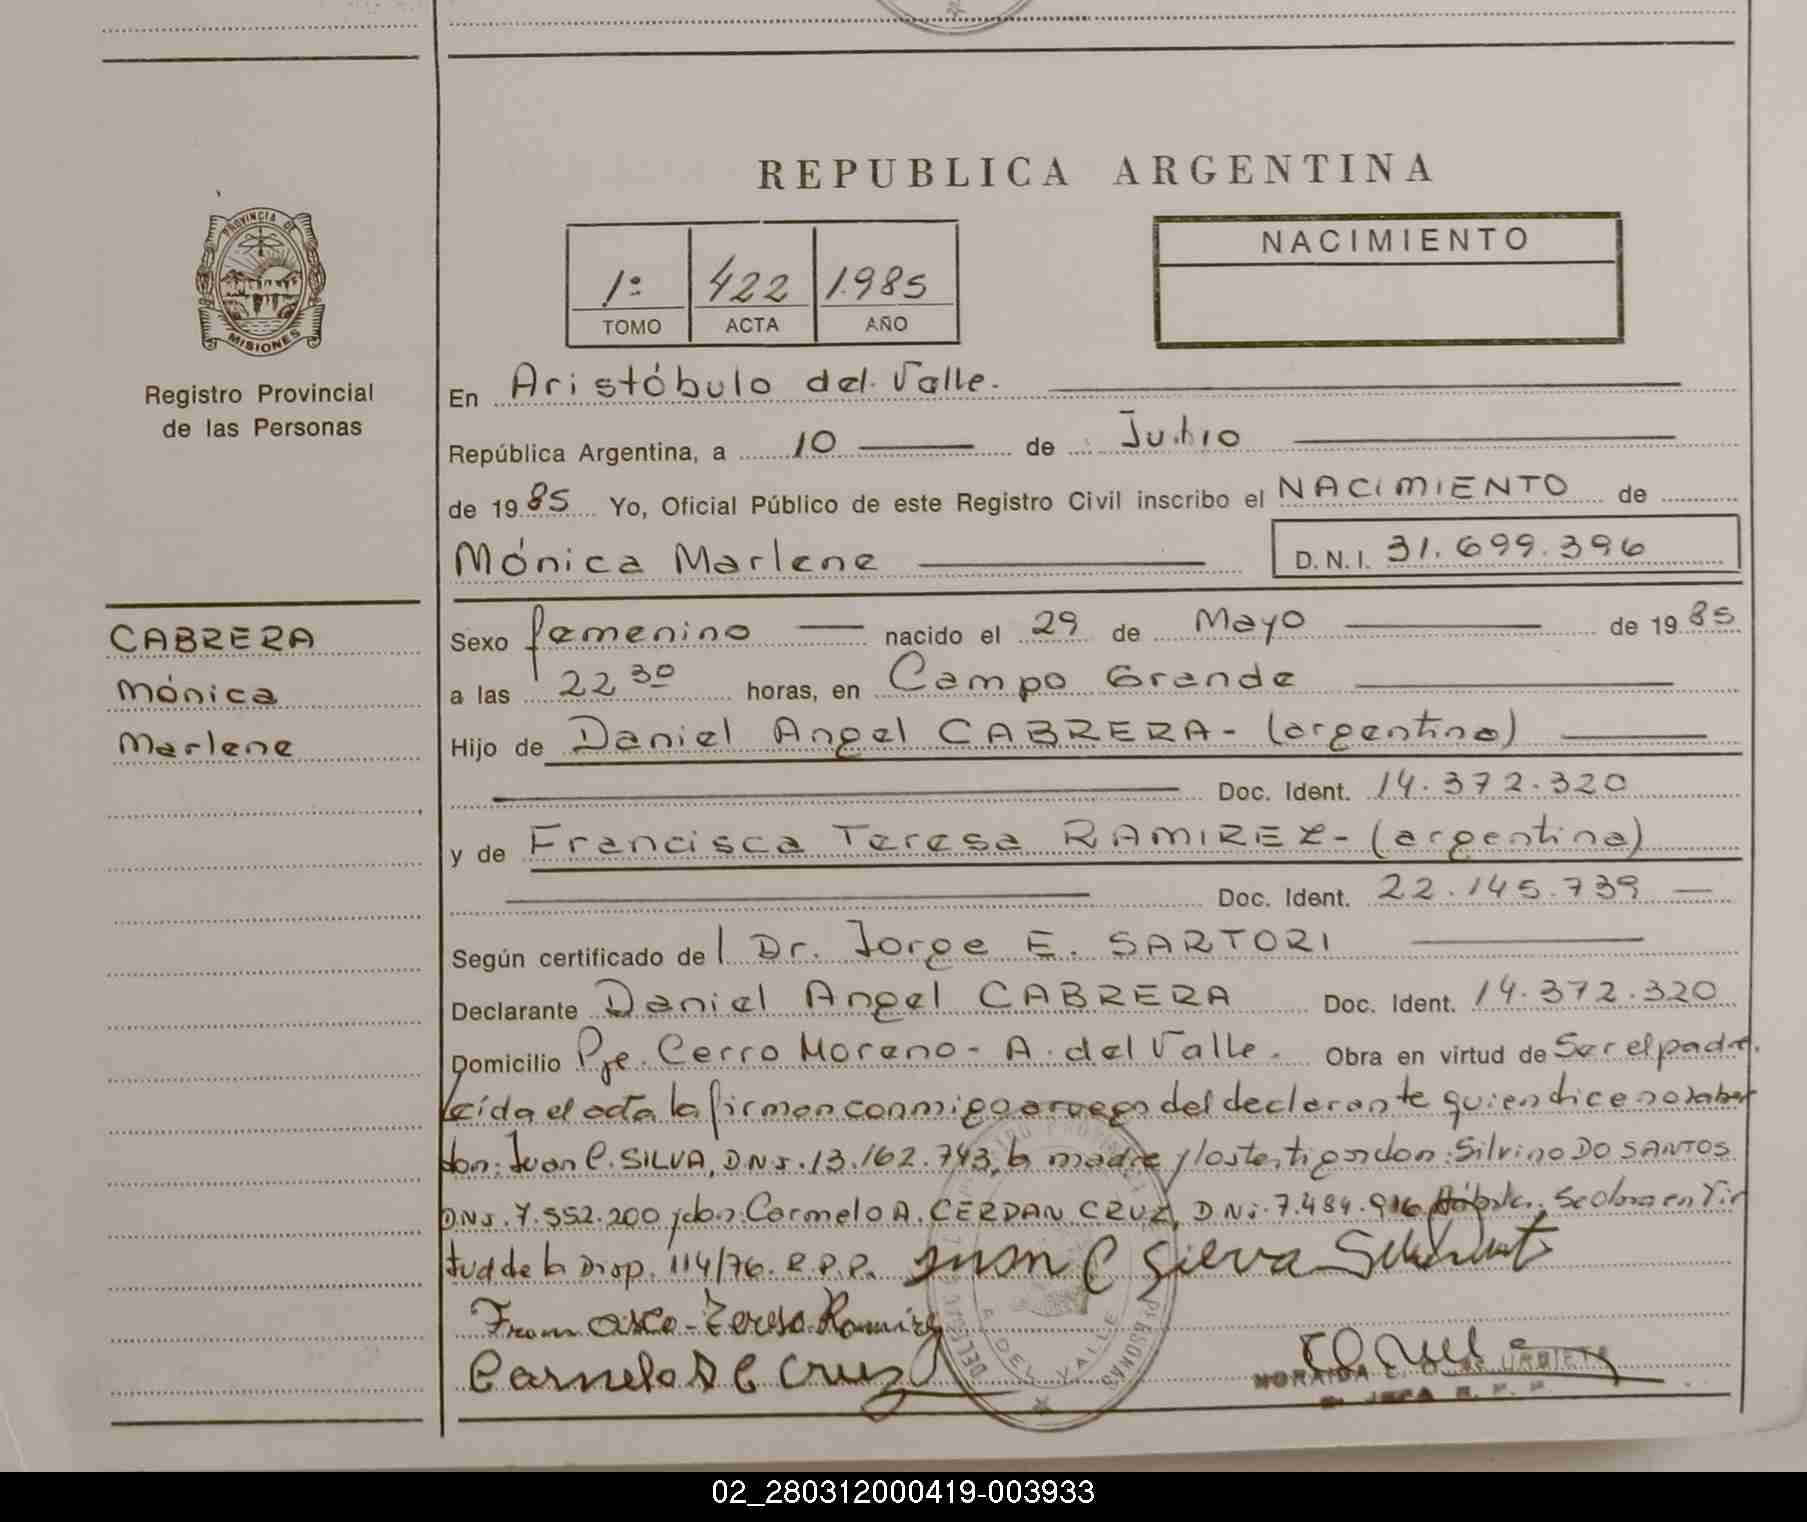 REPUBLICA ARGENTINA
PROVINCIA DE
MISIONES
Registro Provincial
de las Personas
1º 422 1985
TOMO ACTA AÑO
NACIMIENTO
En Aristóbulo del Valle.
República Argentina, a 10 de Junio
de 1985 Yo, Oficial Público de este Registro Civil inscribo el NACIMIENTO de
Mónica Marlene D.N.I. 31.699.396
CABRERA
Mónica
Marlene
Sexo femenino nacido el 29 de Mayo de 1985
a las 22 30 horas, en Campo Grande
Hijo de Daniel Angel CABRERA - (argentino)
Doc. Ident. 14.372.320
y de Francisca Teresa RAMIREZ - (argentina)
Doc. Ident. 22.145.739
Según certificado del Dr. Jorge E. SARTORI
Declarante Daniel Angel CABRERA Doc. Ident. 14.372.320
Domicilio Pje. Cerro Moreno - A. del Valle. Obra en virtud de Ser el padre.
Leída el acta la firman conmigo a ruego del declarante quien dice no saber
don: Juan C. SILVA, DNI. 13.162.743, la madre y los testigos don: Silvino DO SANTOS
DNI. 7.552.200 y don Carmelo A. CERDAN CRUZ, DNI. 7.484.916 Se obra en Vir
tud de la Disp. 114/76. R.P.P. Juan C Silva
Francisca Teresa Ramirez
Carmelo A C Cruz
A. DEL VALLE
PERSONAS
02_280312000419-003933